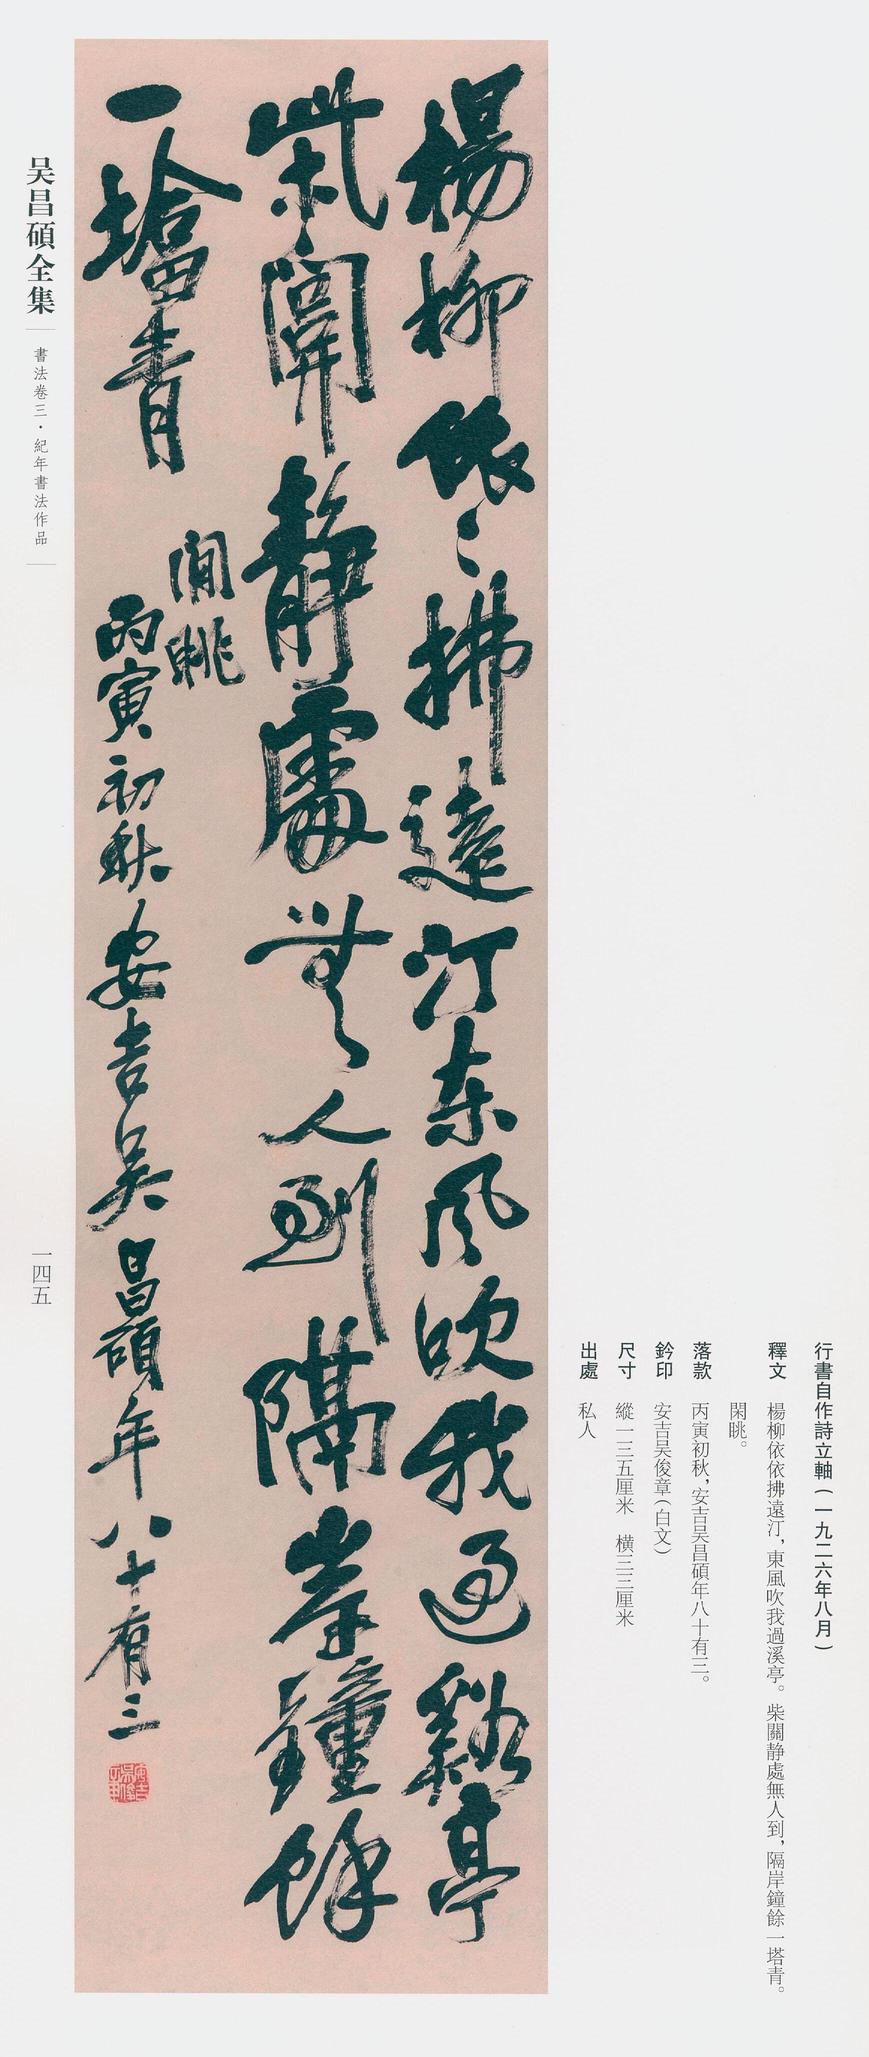 楊柳依〻拂遠汀東風吹我過谿亭
柴關靜處無人到隔岸鐘餘
一塔青
閒眺
丙寅初秋安吉吳昌碩年八十有三
安吉吳俊章
行書自作詩立軸(一九二六年八月)
釋文 楊柳依依拂遠汀,東風吹我過溪亭。柴關靜處無人到,隔岸鐘餘一塔青。
閑眺。
落款 丙寅初秋,安吉吴昌碩年八十有三。
鈐印 安吉吴俊章(白文)
尺寸 縱一三五厘米 橫三三厘米
出處 私人
吴昌碩全集
書法卷三·紀年書法作品
一四五